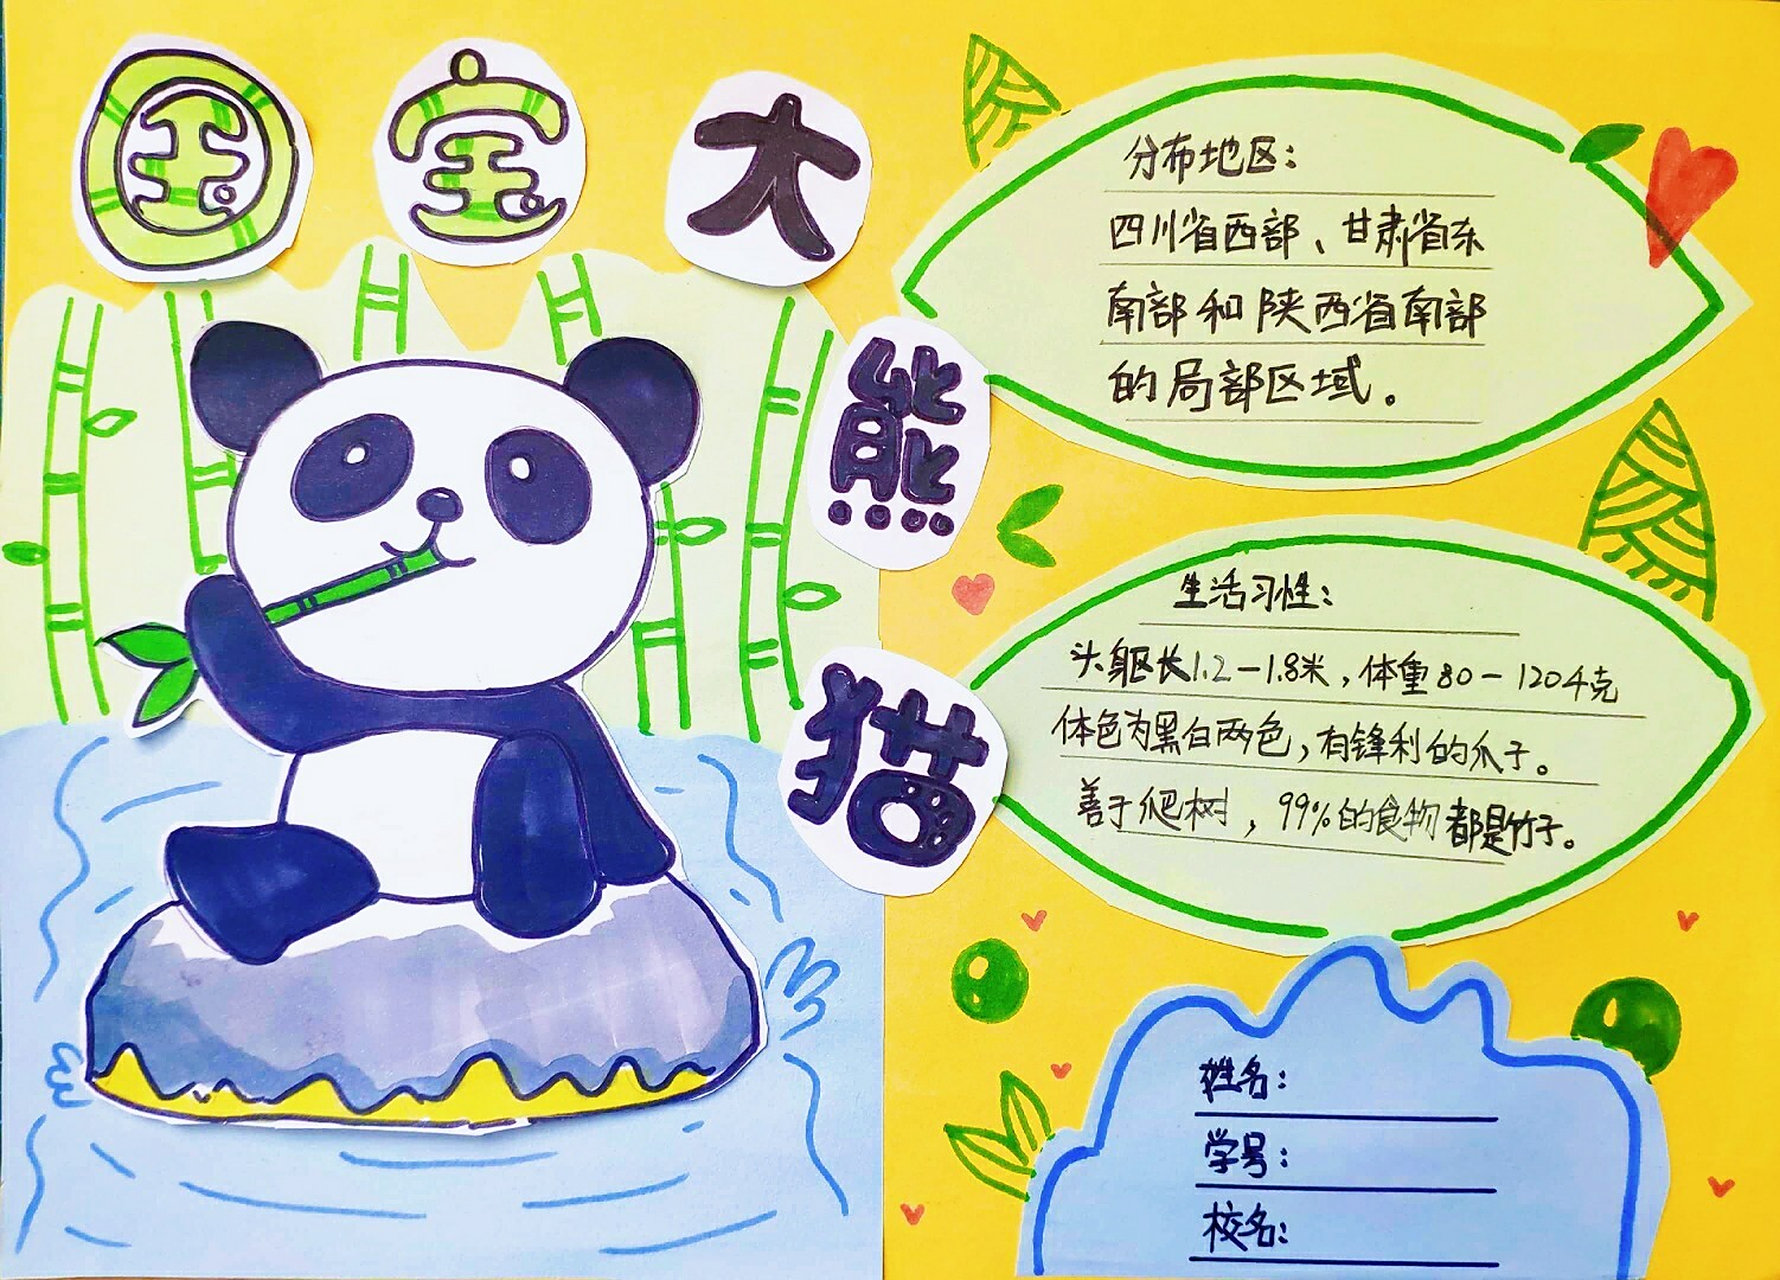 国宝大熊猫
分布地区：
四川省西部、甘肃省东
南部和陕西省南部
的局部区域。
生活习性：
头躯长1.2－1.8米，体重80－120千克
体色为黑白两色，有锋利的爪子。
善于爬树，99%的食物都是竹子。
姓名：
学号：
校名：